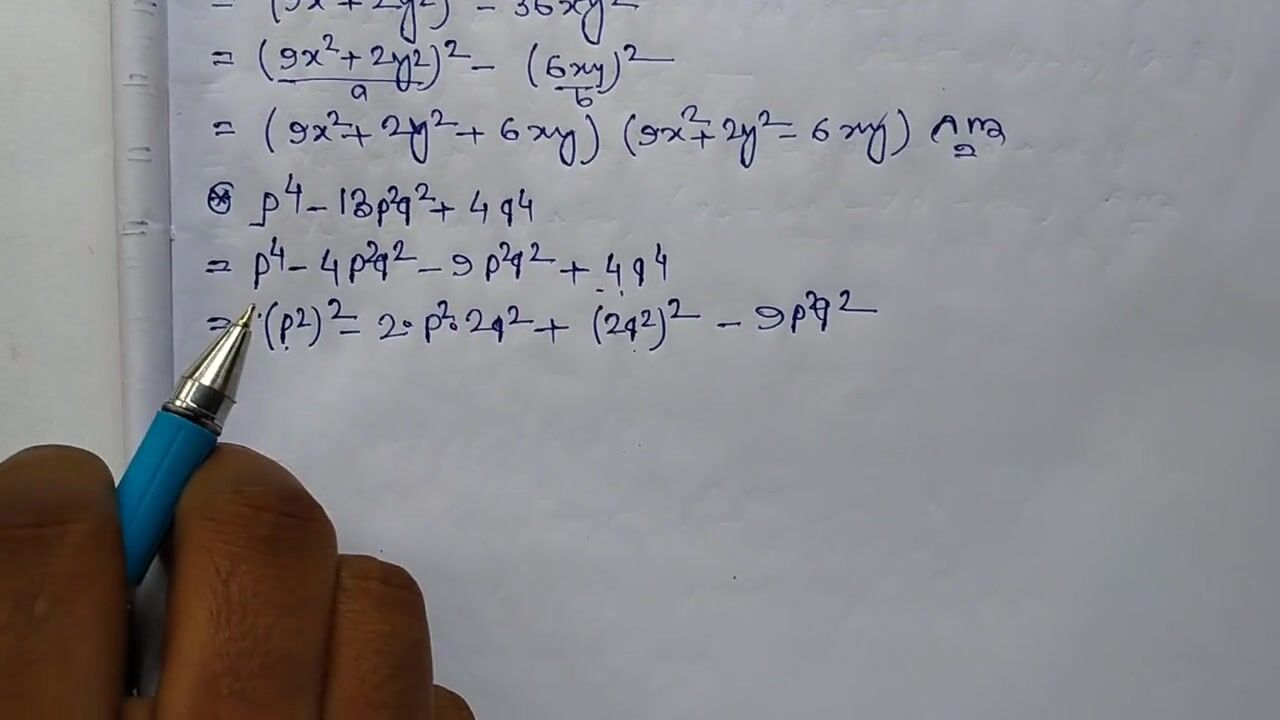 = (9x²+2y²)² - 36xy²
= (9x²+2y²)² - (6xy)²
a b
= (9x²+2y²+6xy) (9x²+2y²-6xy) Ans
⊛ p⁴-13p²q²+4q⁴
= p⁴-4p²q²-9p²q²+4q⁴
= (p²)²-2·p²·2q²+(2q²)²-9p²q²